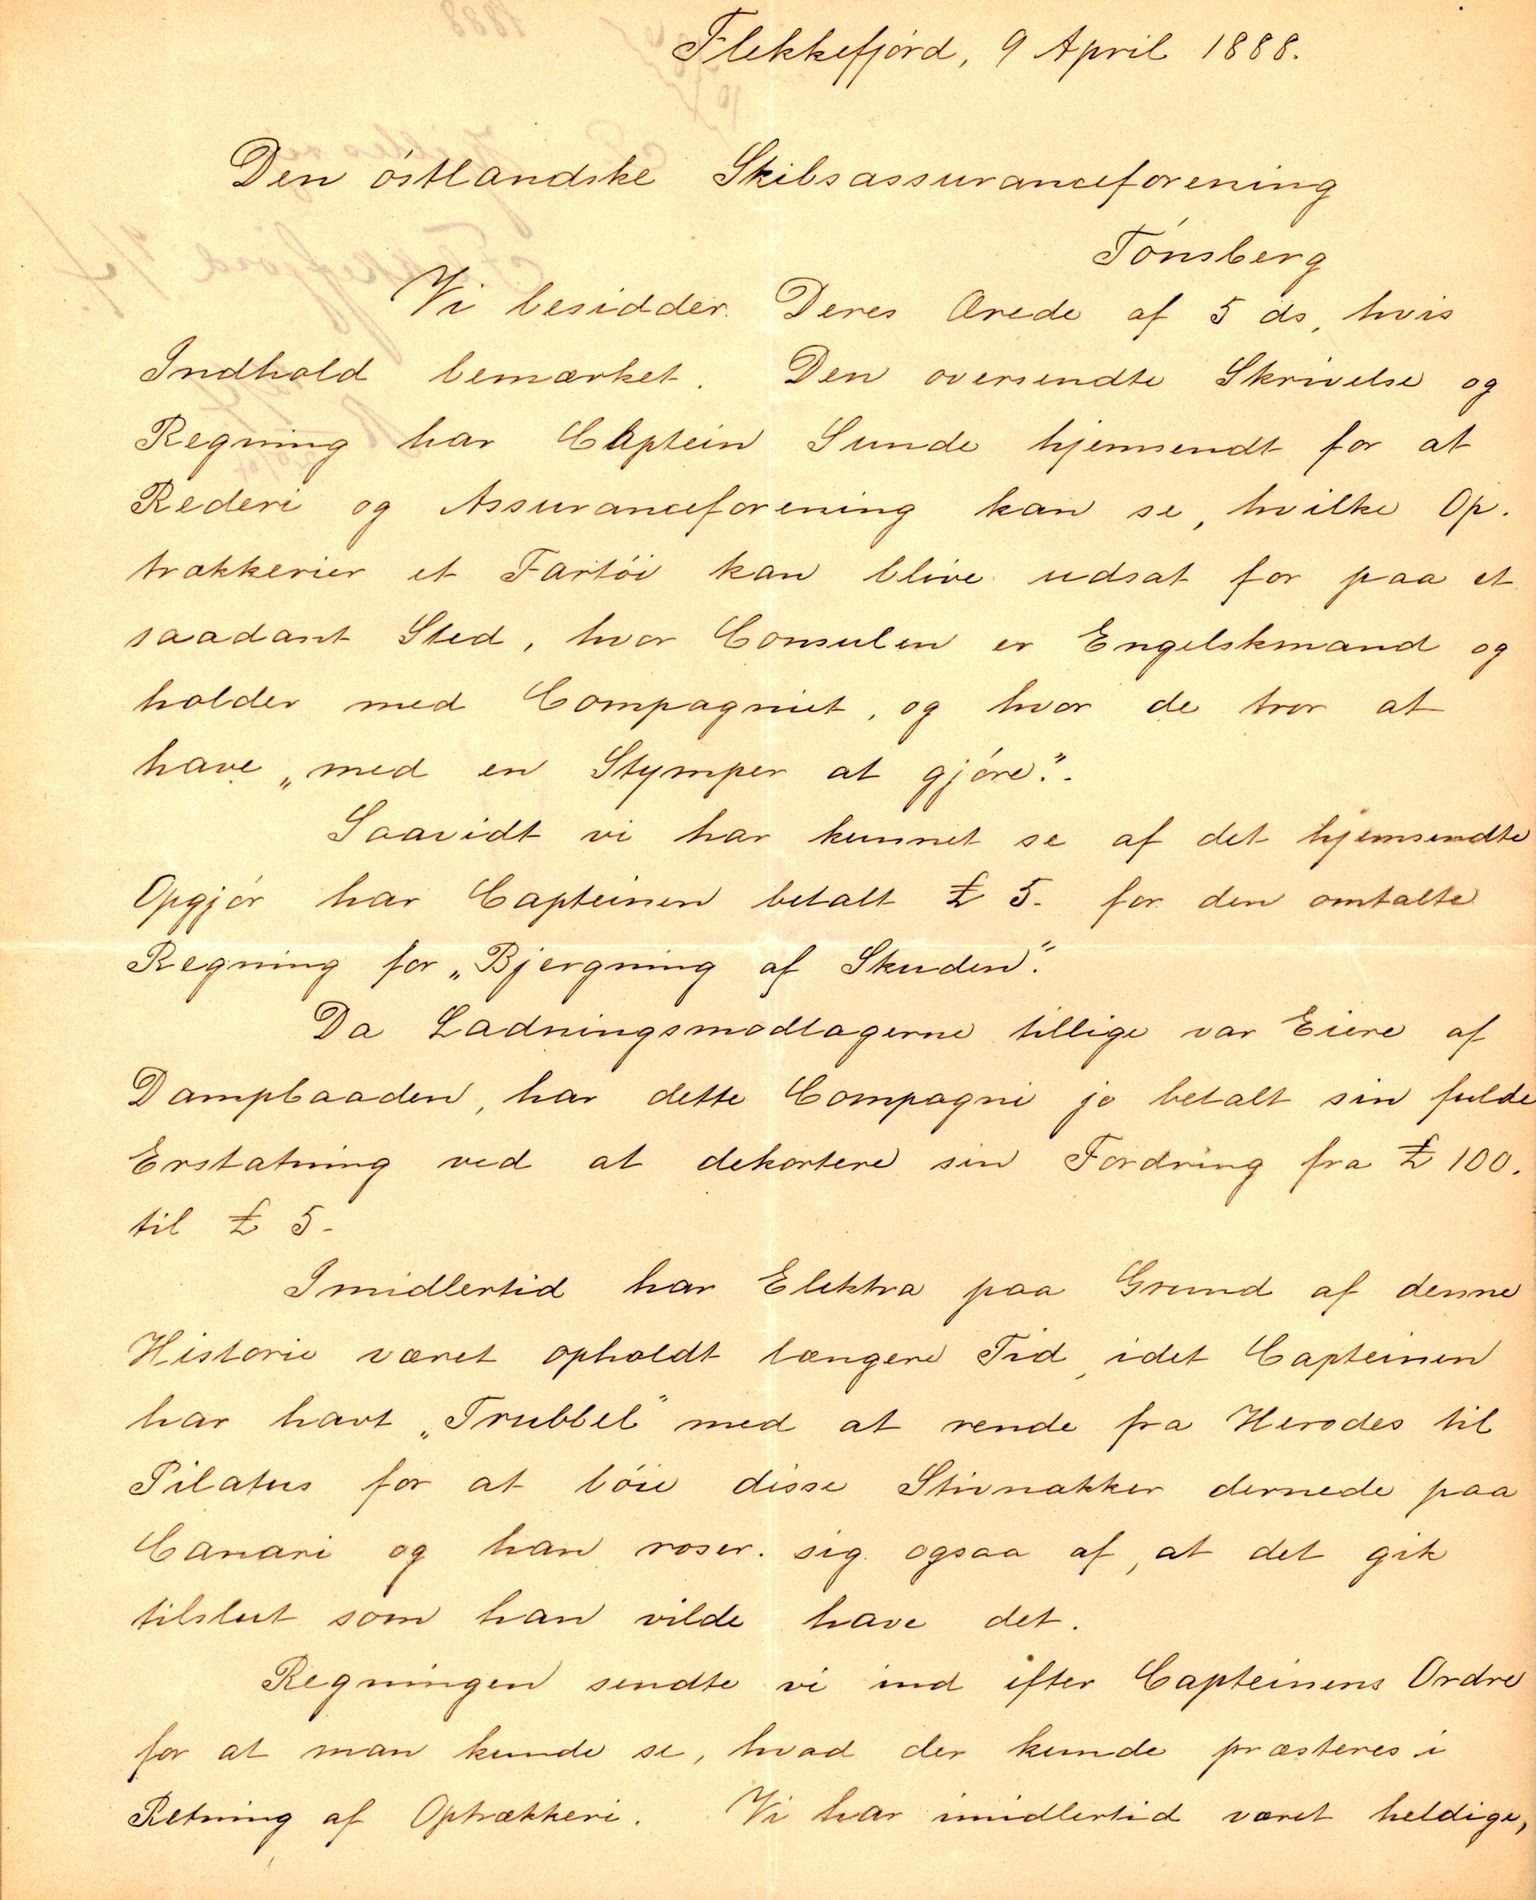 Flekkefjórd, 9 April 1888.
Den óstlandske Skibsassuranceforening
Tónsberg
Vi besidder Deres Ærede af 5 ds, hvis
Indhold bemærket. Den oversendte Skrivelse og
Regning har Captein Sunde hjemsendt for at
Rederi og Assuranceforening kan se, hvilke Op-
trækkerier et Fartói kan blive udsat for paa et
saadant Sted, hvor Consulen er Engelskmand og
holder med Compagniet, og hvor de tror at
have „med en Stymper at gjóre“.
Saavidt vi har kunnet se af det hjemsendte
Opgjór har Capteinen betalt £ 5- for den omtalte
Regning for „Bjergning af Skuden“.
Da Ladningsmodtagerne tillige var Eiere af
Dampbaaden, har dette Compagni jo betalt sin fulde
Erstatning ved at dekortere sin Fordring fra £ 100.
til £ 5-
Imidlertid har Elektra paa Grund af denne
Historie været opholdt længere Tid, idet Capteinen
har havt „Trubbel“ med at rende fra Herodes til
Pilatus for at bóie disse Stivnakker dernede paa
Canari og han roser sig ogsaa af, at det gik
tilslut som han vilde have det.
Regningen sendte vi ind efter Capteinens Ordre
for at man kunde se, hvad der kunde præsteres i
Retning af Optrækkeri. Vi har imidlertid været heldige,